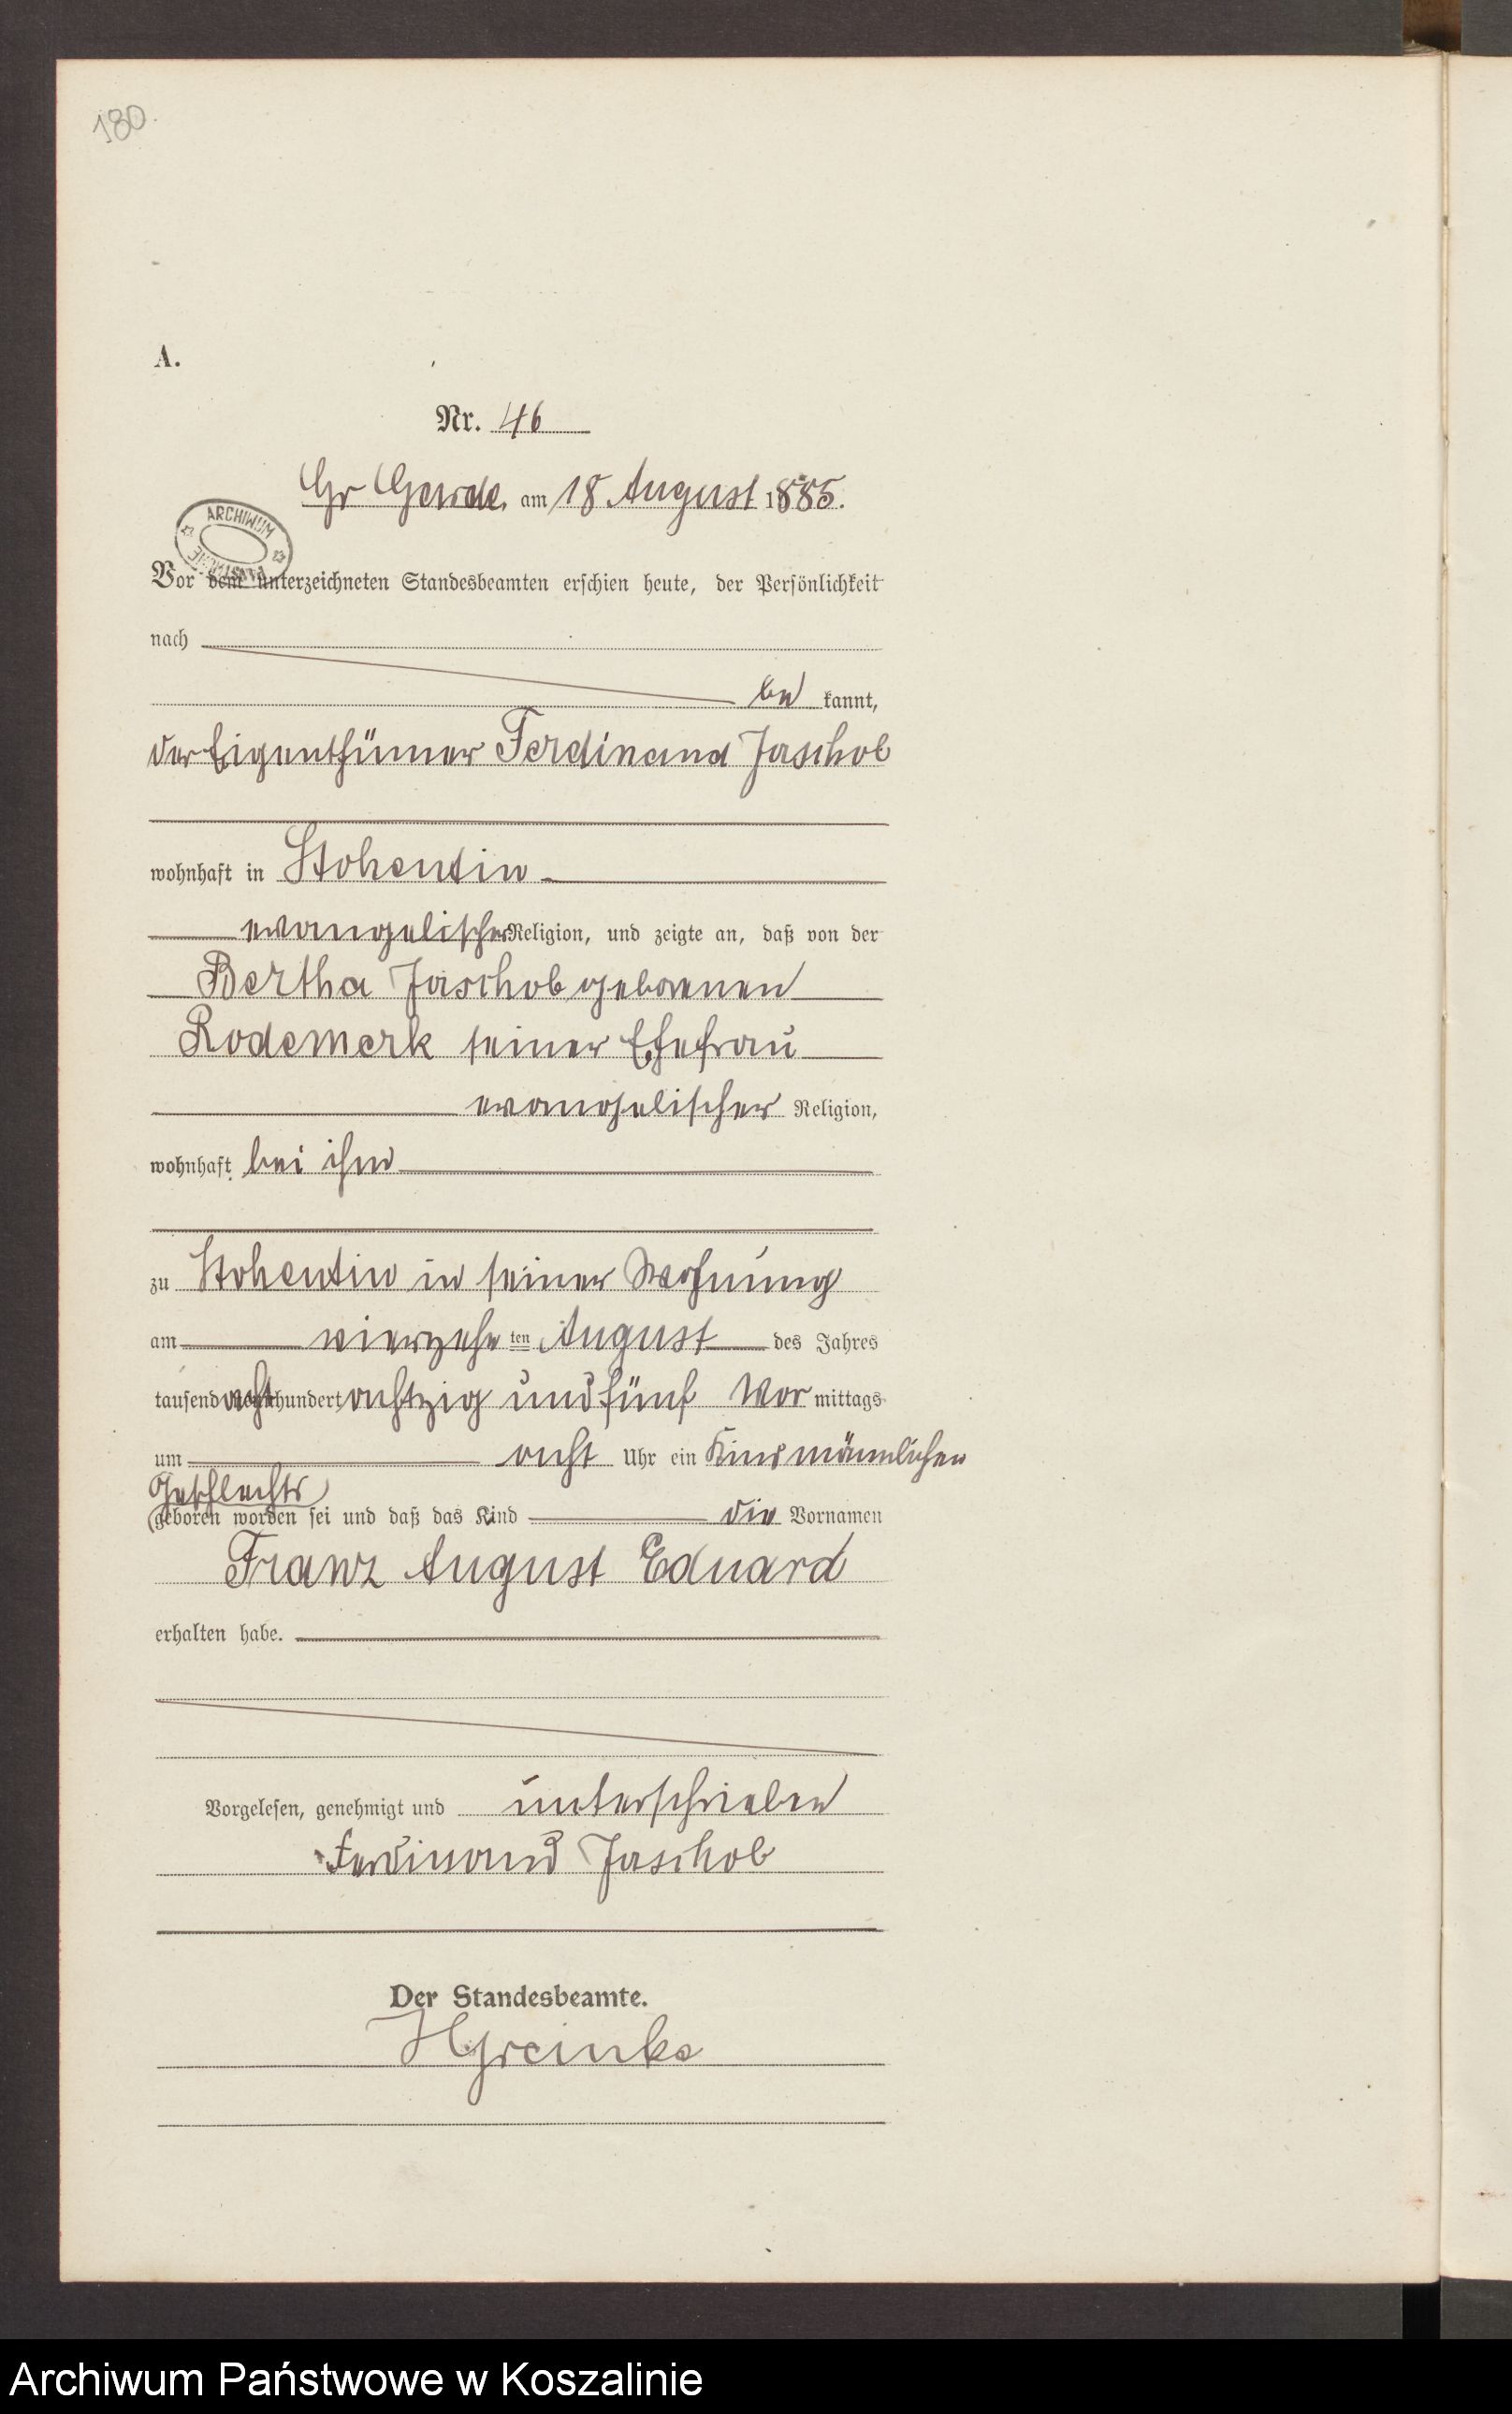 180.
A.
Nr. 46
Gr Garde, am 18 August 1885.
ARCHIWUM
Vor dem unterzeichneten Standesbeamten erschien heute, der Persönlichkeit
nach
be kannt,
der Eigenthümer Ferdinand Jaschob
wohnhaft in Stohentin
evangelischer Religion, und zeigte an, daß von der
Bertha Jaschob geborenen
Rodemerk seiner Ehefrau
evangelischer Religion,
wohnhaft bei ihm
zu Stohentin in seiner Wohnung
am vierzehn ten August des Jahres
tausend acht hundert achtzig und fünf Vor mittags
um acht Uhr ein Kind männlichen
Geschlechts
geboren worden sei und daß das Kind die Vornamen
Franz August Eduard
erhalten habe.
Vorgelesen, genehmigt und unterschrieben
Ferdinand Jaschob
Der Standesbeamte.
Archiwum Państwowe w Koszalinie